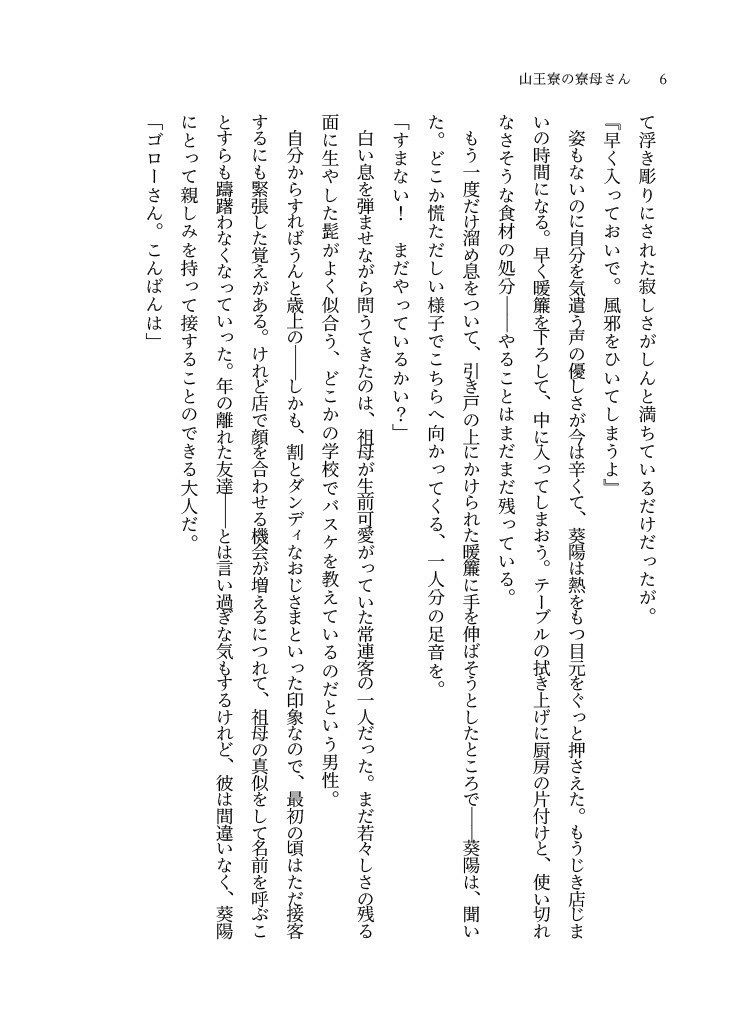 山王寮の寮母さん　6
て浮き彫りにされた寂しさがしんと満ちているだけだったが。
『早く入っておいで。風邪をひいてしまうよ』
　姿もないのに自分を気遣う声の優しさが今は辛くて、葵陽は熱をもつ目元をぐっと押さえた。もうじき店じま
いの時間になる。早く暖簾を下ろして、中に入ってしまおう。テーブルの拭き上げに厨房の片付けと、使い切れ
なさそうな食材の処分――やることはまだまだ残っている。
　もう一度だけ溜め息をついて、引き戸の上にかけられた暖簾に手を伸ばそうとしたところで――葵陽は、聞い
た。どこか慌ただしい様子でこちらへ向かってくる、一人分の足音を。
「すまない！　まだやっているかい？」
　白い息を弾ませながら問うてきたのは、祖母が生前可愛がっていた常連客の一人だった。まだ若々しさの残る
面に生やした髭がよく似合う、どこかの学校でバスケを教えているのだという男性。
　自分からすればうんと歳上の――しかも、割とダンディなおじさまといった印象なので、最初の頃はただ接客
するにも緊張した覚えがある。けれど店で顔を合わせる機会が増えるにつれて、祖母の真似をして名前を呼ぶこ
とすらも躊躇わなくなっていった。年の離れた友達――とは言い過ぎな気もするけれど、彼は間違いなく、葵陽
にとって親しみを持って接することのできる大人だ。
「ゴローさん。こんばんは」